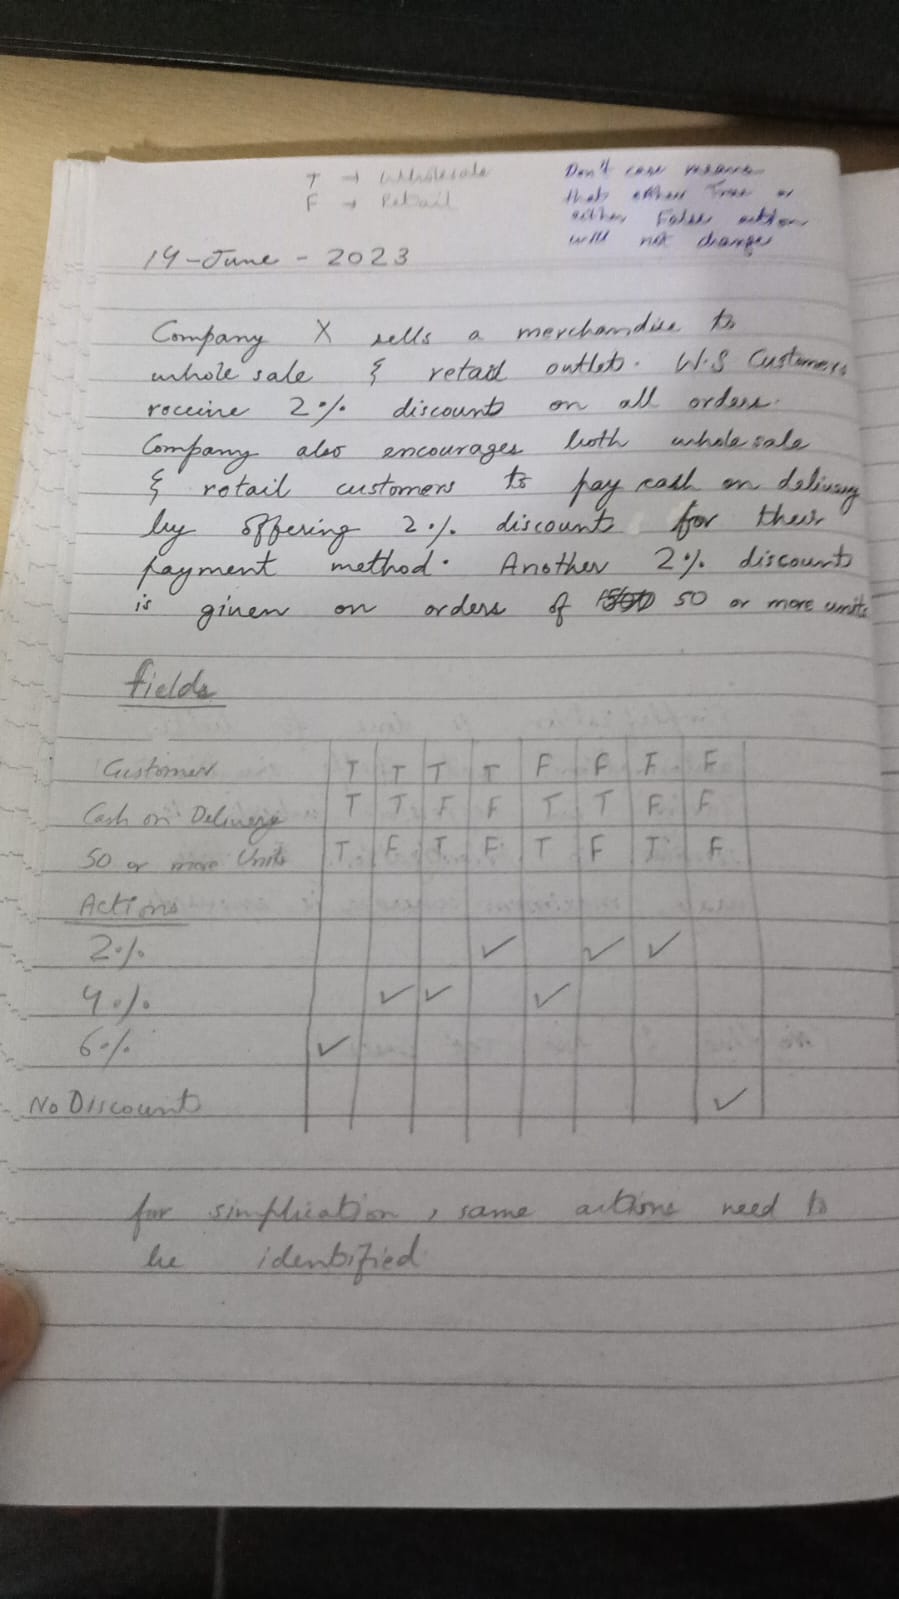 T → Wholesale
F → Retail
Don't care means
that either True or
either False action
will not change
14-June-2023
Company X sells a merchandise to
whole sale & retail outlet. W.S Customers
receive 2% discount on all orders.
Company also encourages both whole sale
& retail customers to pay cash on delivery
by offering 2% discount for their
payment method. Another 2% discount
is given on orders of 50 or more units
fields
Customer T T T T F F F F
Cash on Delivery T T F F T T F F
50 or more Units T F T F T F T F
Actions
2% ✓ ✓ ✓
4% ✓ ✓ ✓
6% ✓
No Discount ✓
for simplication, same actions need to
be identified